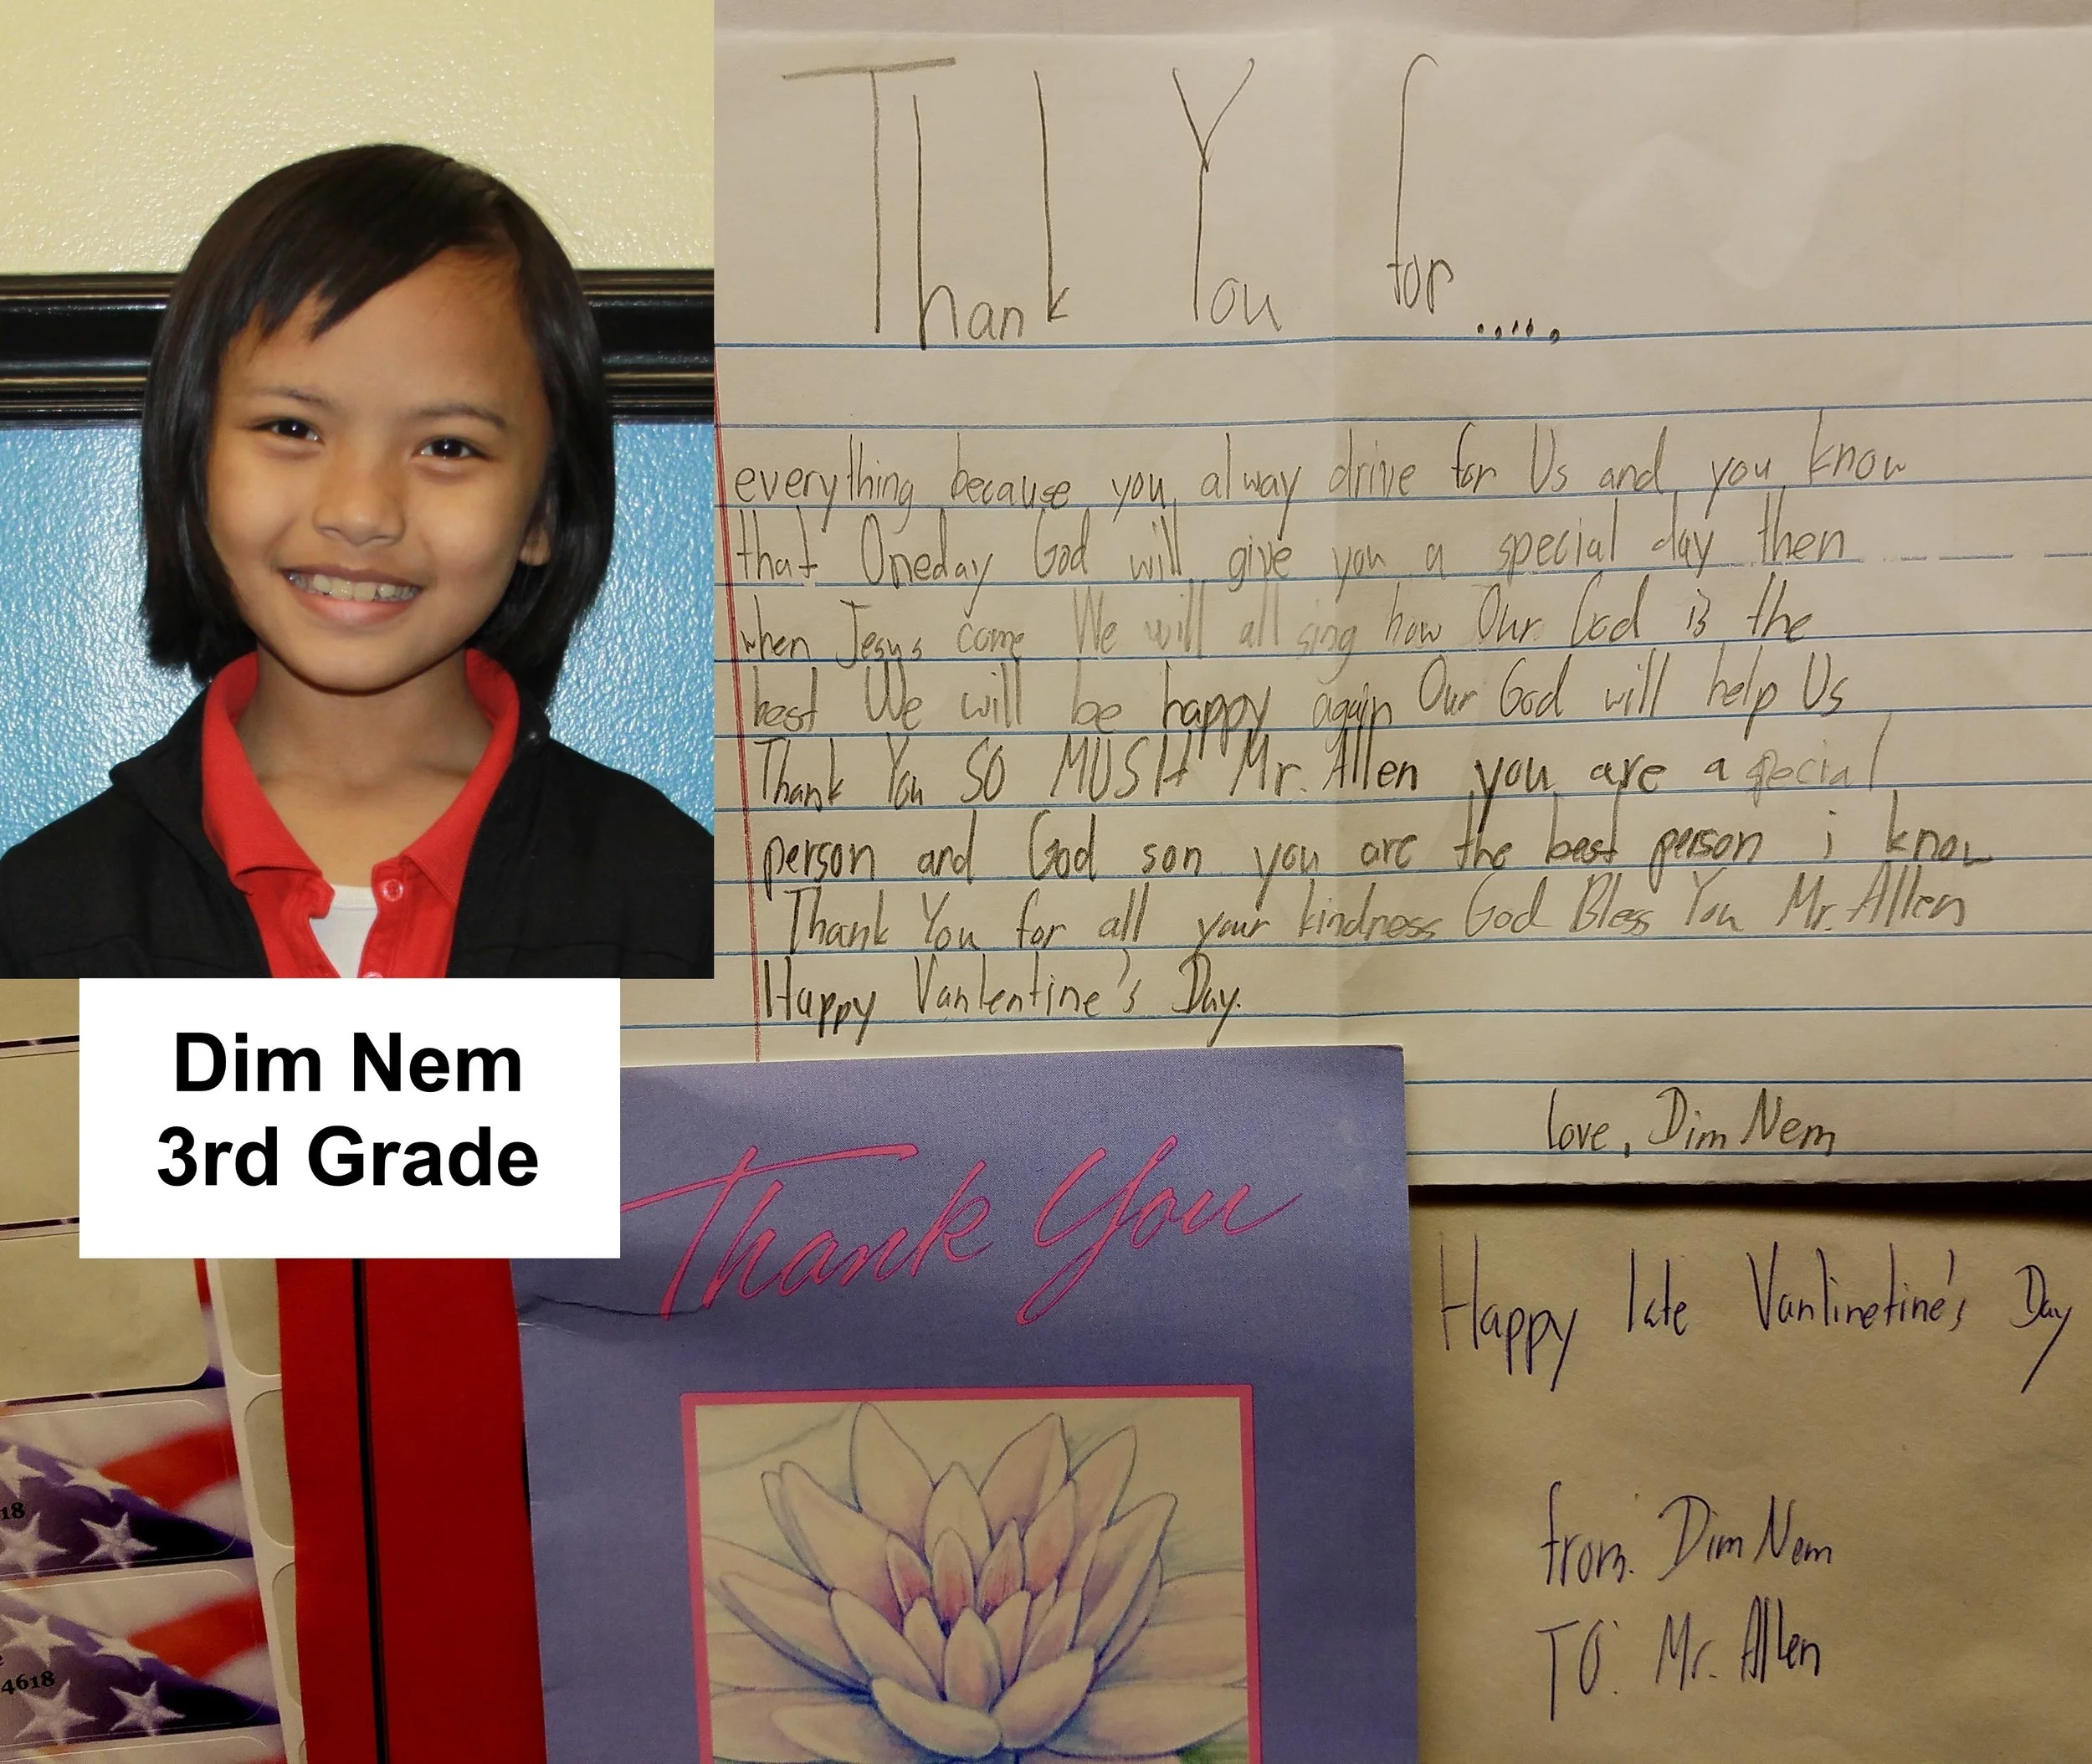 Thank You for.....
everything because you alway drive for Us and you know
that Oneday God will give you a special day then
when Jesus come We will all sing how Our God is the
best We will be happy again Our God will help Us
Thank You SO MUSH Mr. Allen you are a special
person and God son you are the best person i know
Thank You for all your kindness God Bless You Mr. Allen
Happy Vanlentine's Day.
love, Dim Nem
Dim Nem
3rd Grade
Thank You
Happy late Vanlinetine's Day
from: Dim Nem
TO: Mr. Allen
18
4618